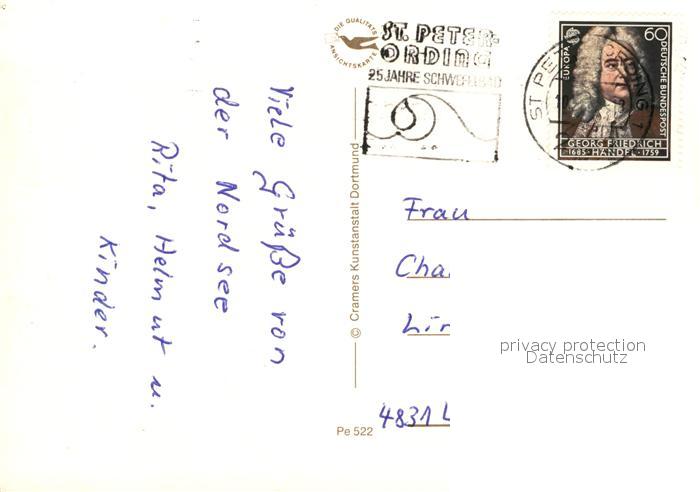 Viele Grüße von
der Nordsee
Rita, Helmut u.
Kinder.
© Cramers Kunstanstalt Dortmund
Pe 522
DIE QUALITÄTS
ANSICHTSKARTE
ST. PETER-
ORDING
25 JAHRE SCHWEFELBAD
ST PETER-ORDING 1
EUROPA
60
DEUTSCHE BUNDESPOST
GEORG FRIEDRICH
1685 · HÄNDEL · 1759
Frau
Cha
Lir
4831 L
privacy protection
Datenschutz